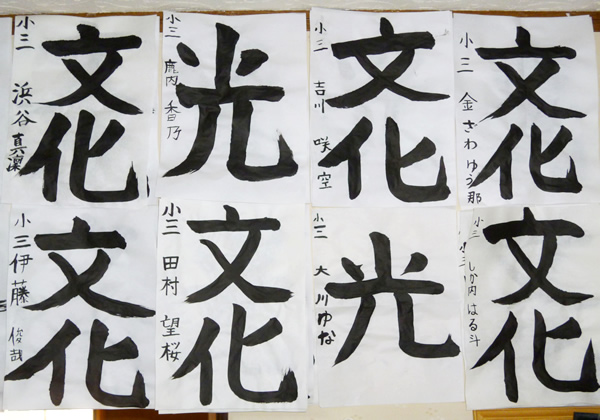 文化
小三
浜谷真凜
光
小三
鹿内香乃
文化
小三
吉川咲空
文化
小三
金ざわゆう那
文化
小三
伊藤俊哉
文化
小三
田村望桜
光
小三
大川ゆな
文化
小三
しか内はる斗